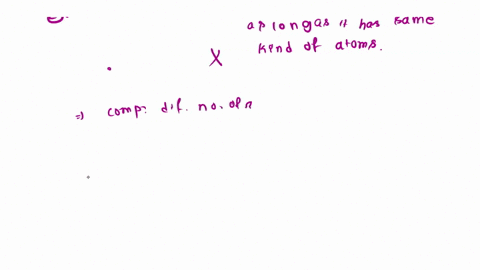 as long as it has same
X kind of atoms.
=) comp: dif. no. of n